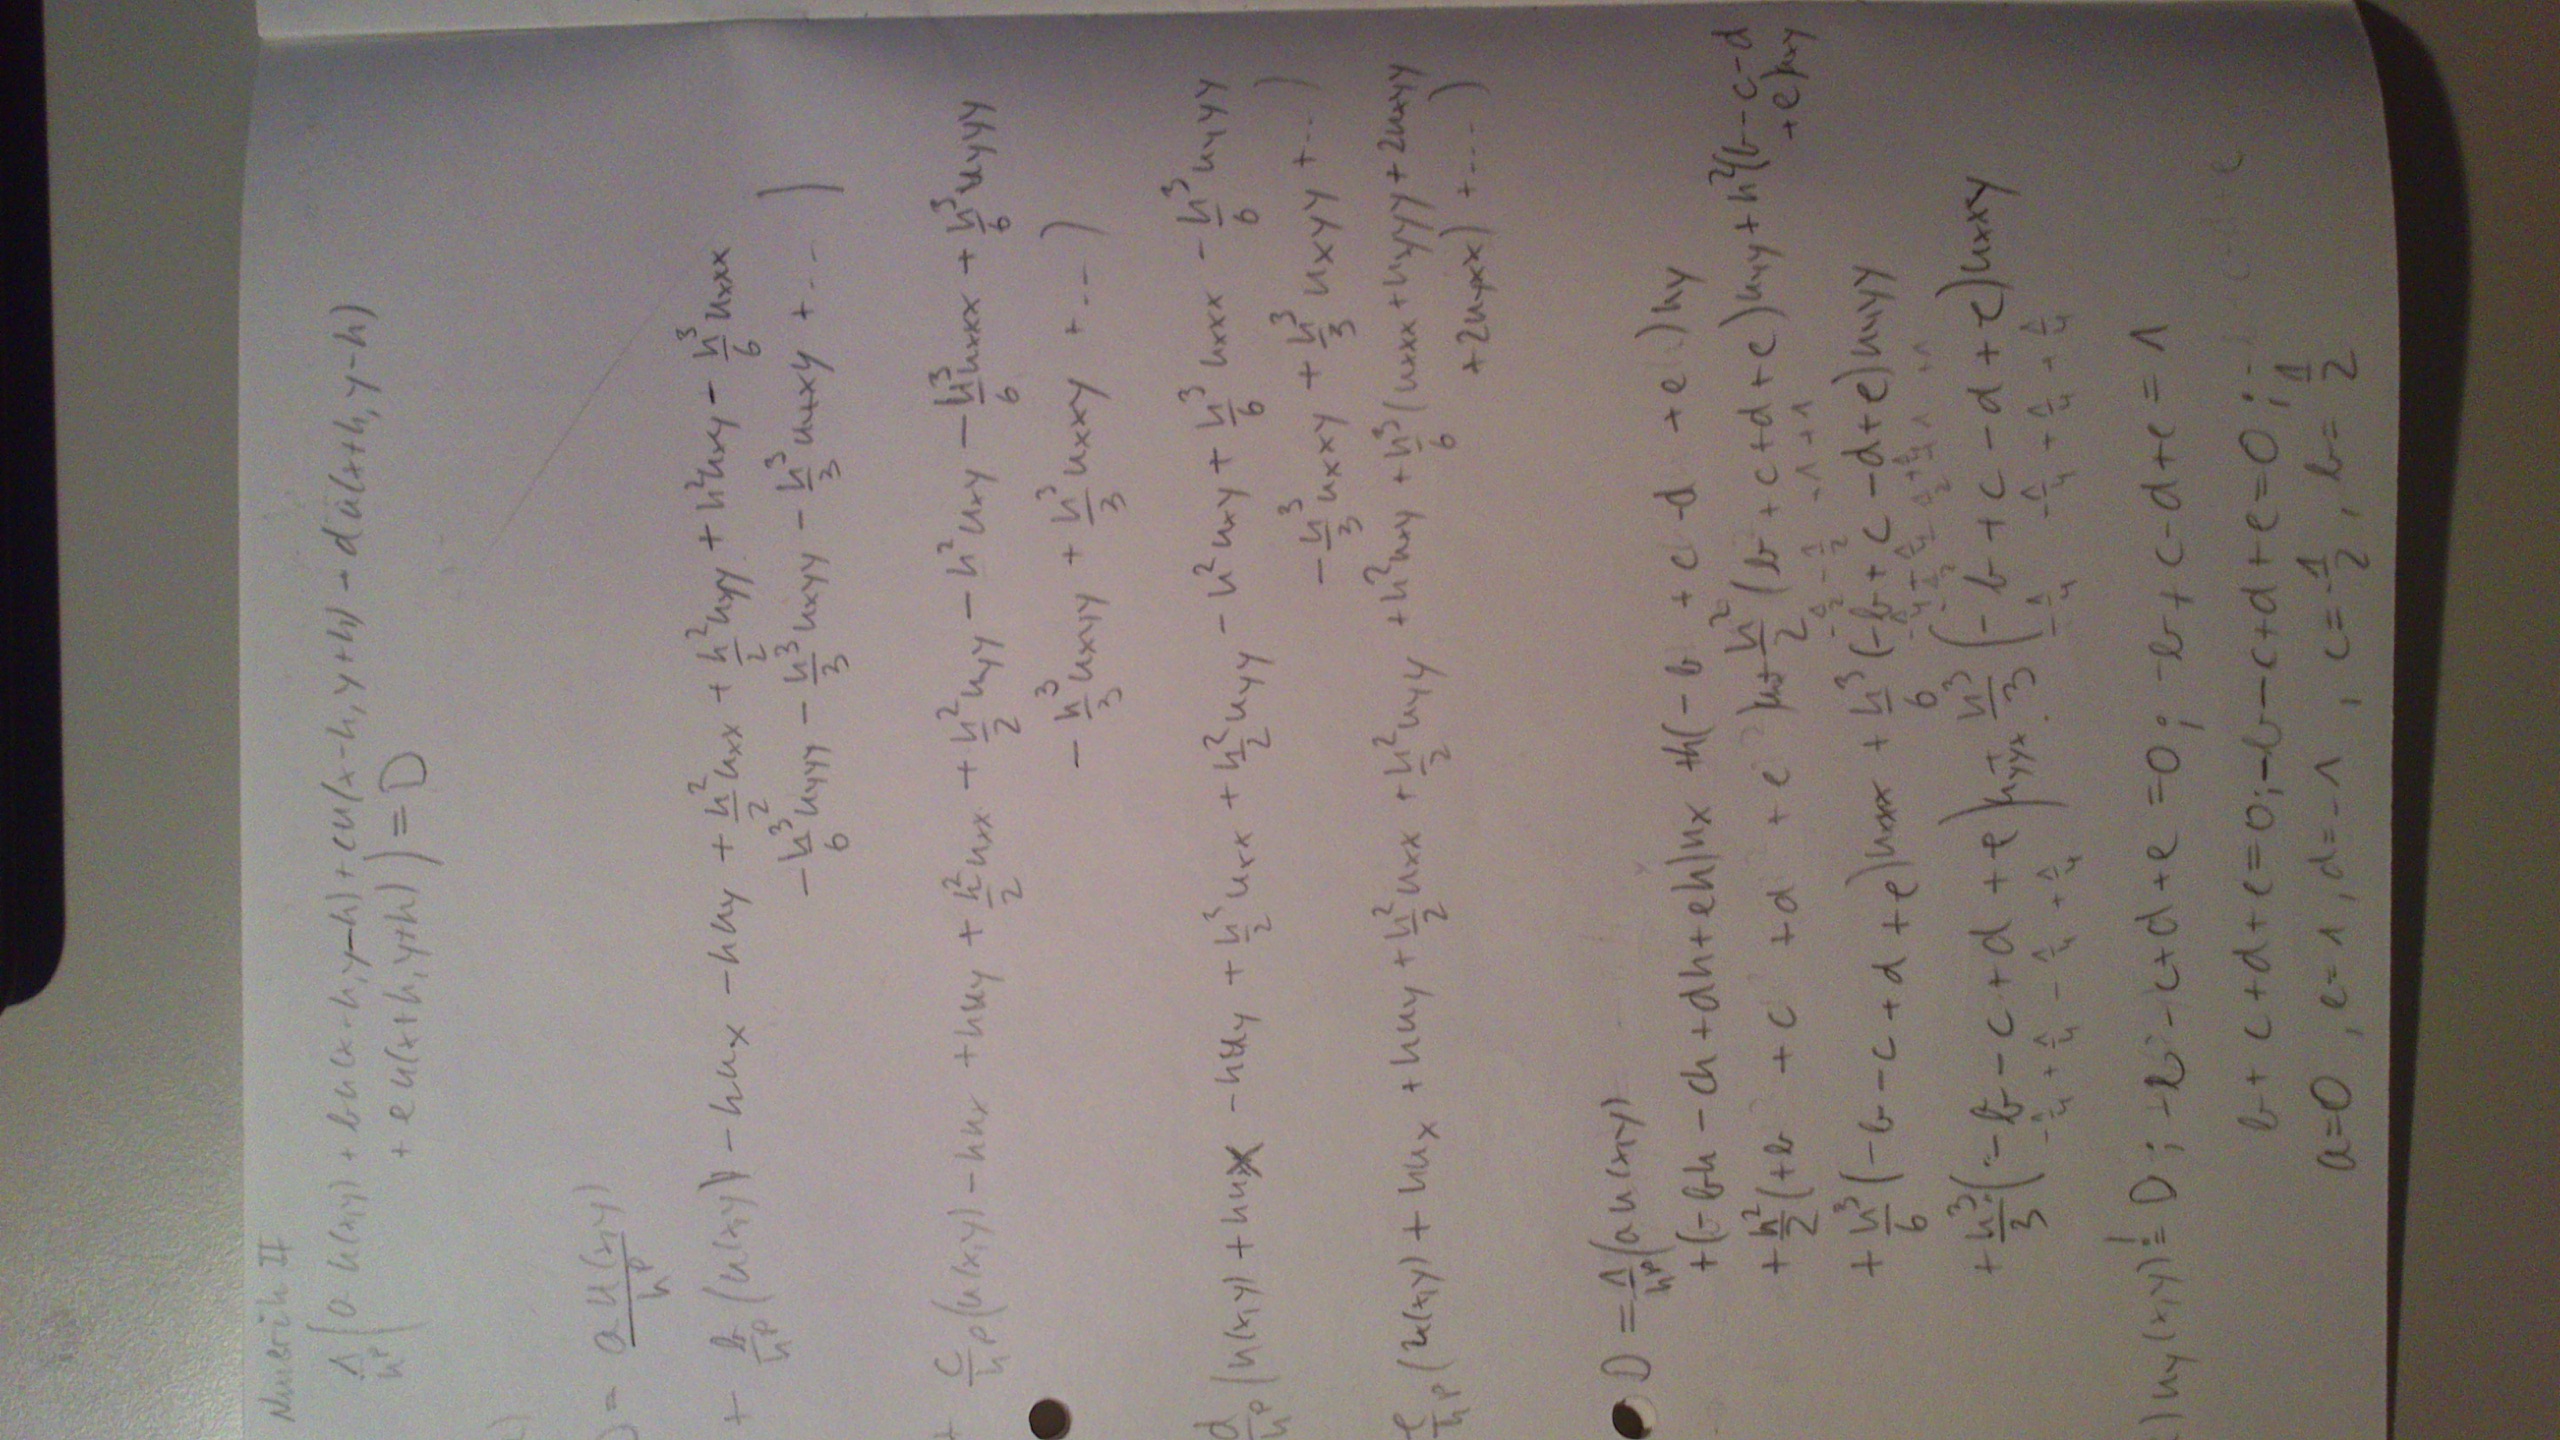 Numerik II
1/h^p ( a u(x,y) + b u(x-h, y-h) + c u(x-h, y+h) + d u(x+h, y-h)
+ e u(x+h, y+h) ) = D
= a u(x,y) / h^p
+ b/h^p (u(x,y) - hu_x - hu_y + h²/2 u_xx + h²/2 u_yy + h² u_xy - h³/6 u_xxx
- h³/6 u_yyy - h³/3 u_xyy - h³/3 u_xxy + ... )
+ c/h^p (u(x,y) - hu_x + hu_y + h²/2 u_xx + h²/2 u_yy - h² u_xy - h³/6 u_xxx + h³/6 u_yyy
- h³/3 u_xyy + h³/3 u_xxy + ... )
d/h^p (u(x,y) + hu_x - hu_y + h²/2 u_xx + h²/2 u_yy - h² u_xy + h³/6 u_xxx - h³/6 u_yyy
- h³/3 u_xxy + h³/3 u_xyy + ... )
e/h^p (u(x,y) + hu_x + hu_y + h²/2 u_xx + h²/2 u_yy + h² u_xy + h³/6 (u_xxx + u_yyy + 2u_xyy
+ 2u_yxx) + .... )
D = 1/h^p (a u(x,y)
+ (-bh - ch + dh + eh) u_x + h(-b + c - d + e) u_y
+ h²/2 (+b + c + d + e) + h²/2 (b + c + d + e) u_yy + h² (b - c - d
+ e) u_xy
- 1/2 - 1/2 - 1 + 1
+ h³/6 (-b - c + d + e) u_xxx + h³/6 (-b + c - d + e) u_yyy
+ h³/3 (-b - c + d + e) u_yyx + h³/3 (-b + c - d + e) u_xxy
- 1/4 + 1/4 - 1/4 + 1/4 - 1/4 - 1/4 + 1/4 + 1/4
) u_y(x,y) != D ; -b - c + d + e = 0 ; -b + c - d + e = 1
b + c + d + e = 0 ; -b - c + d + e = 0 ;
a = 0 , e = 1 , d = -1 , c = -1/2 , b = 1/2